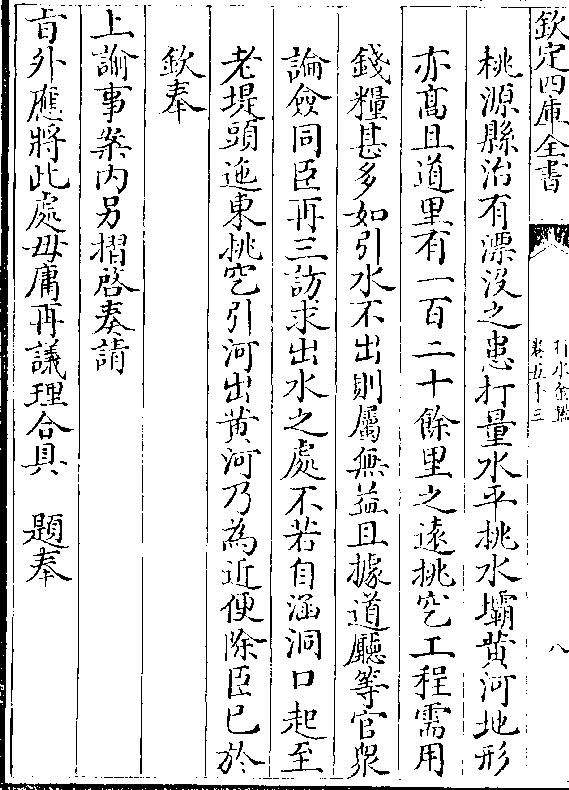 欽定四庫全書
行水金鑑
卷五十三
八
桃源縣治有漂沒之患打量水平挑水壩黄河地形
亦髙且道里有一百二十餘里之遠挑穵工程需用
錢糧甚多如引水不出則屬無益且據道廳等官衆
論僉同臣再三訪求出水之處不若自涵洞口起至
老堤頭迤東挑穵引河出黄河乃為近便除臣已於
欽奉
上諭事案内另摺啓奏請
㫖外應將此處毋庸再議理合具 題奉